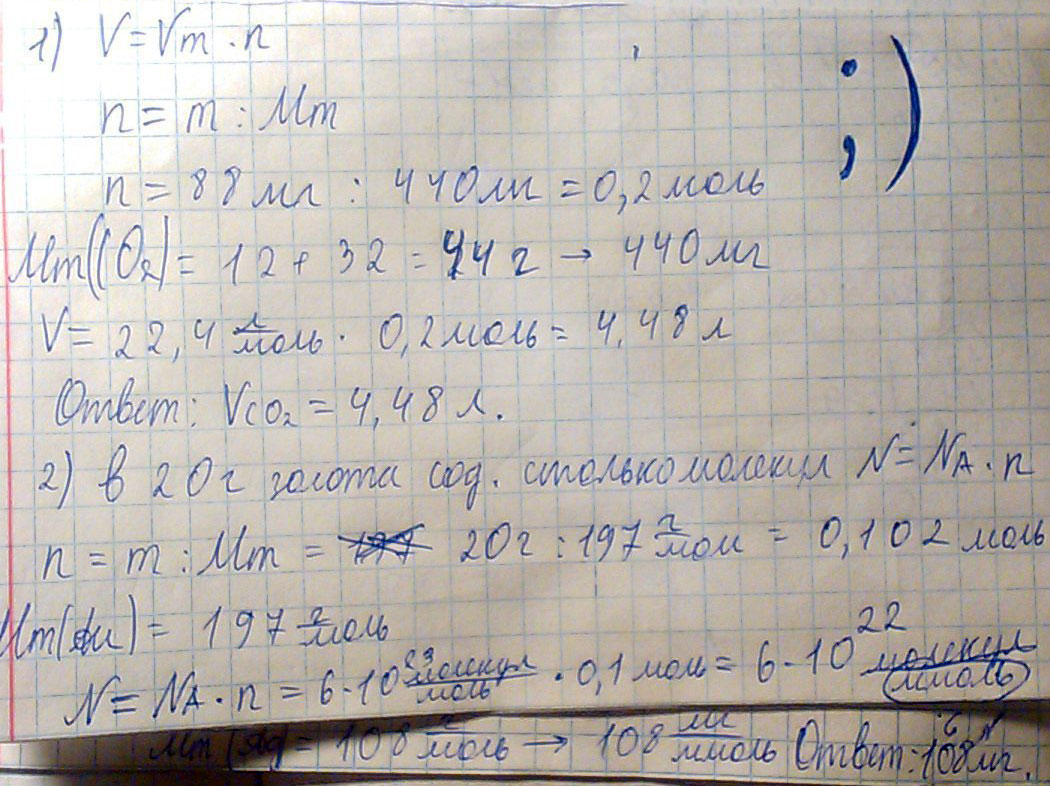 1) V = Vm · n
;)
n = m : Mm
n = 88 мг : 440 мг = 0,2 моль
Mm(CO₂) = 12 + 32 = 44 г → 440 мг
V = 22,4 л/моль · 0,2 моль = 4,48 л
Ответ: Vco₂ = 4,48 л.
2) в 20 г золота сод. столько молекул N = NA · n
n = m : Mm = 20 г : 197 г/мол = 0,102 моль
Mm(Au) = 197 г/моль
N = NA · n = 6 · 10²³ молекул/моль · 0,1 моль = 6 · 10²² молекул/ммоль
= 108 г/моль → 108 мг/ммоль Ответ: 108 мг.